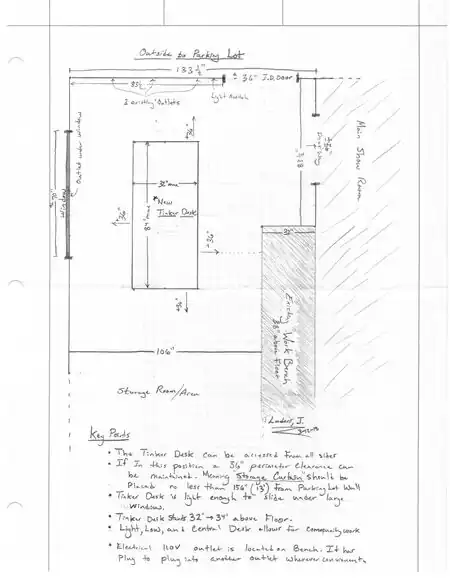 Outside to Parking Lot
133 1/2"
36" I.D. Door
83 1/2"
3 existing outlets
Light Switch
Outlet under window
70"
Window
±36"
36" max
84" max
*New
Tinker Desk
±36"
±36"
±36"
Main Show Room
Existing Work Bench
38" above Floor
106"
Storage Room/Area
Landers, J.
Key Points
• The Tinker Desk can be accessed from all sides
• If In this position a 36" perimeter clearance can
be maintained. Meaning Storage Curtain should be
Placed no less than 156" (13') from Parking Lot Wall
• Tinker Desk is light enough to slide under large
window.
• Tinker Desk stands 32" → 34" above Floor.
• Light, Low, and Central Desk allows for community work
• Electrical 110V outlet is located on Bench. It has
Plug to plug into another outlet wherever convenient.